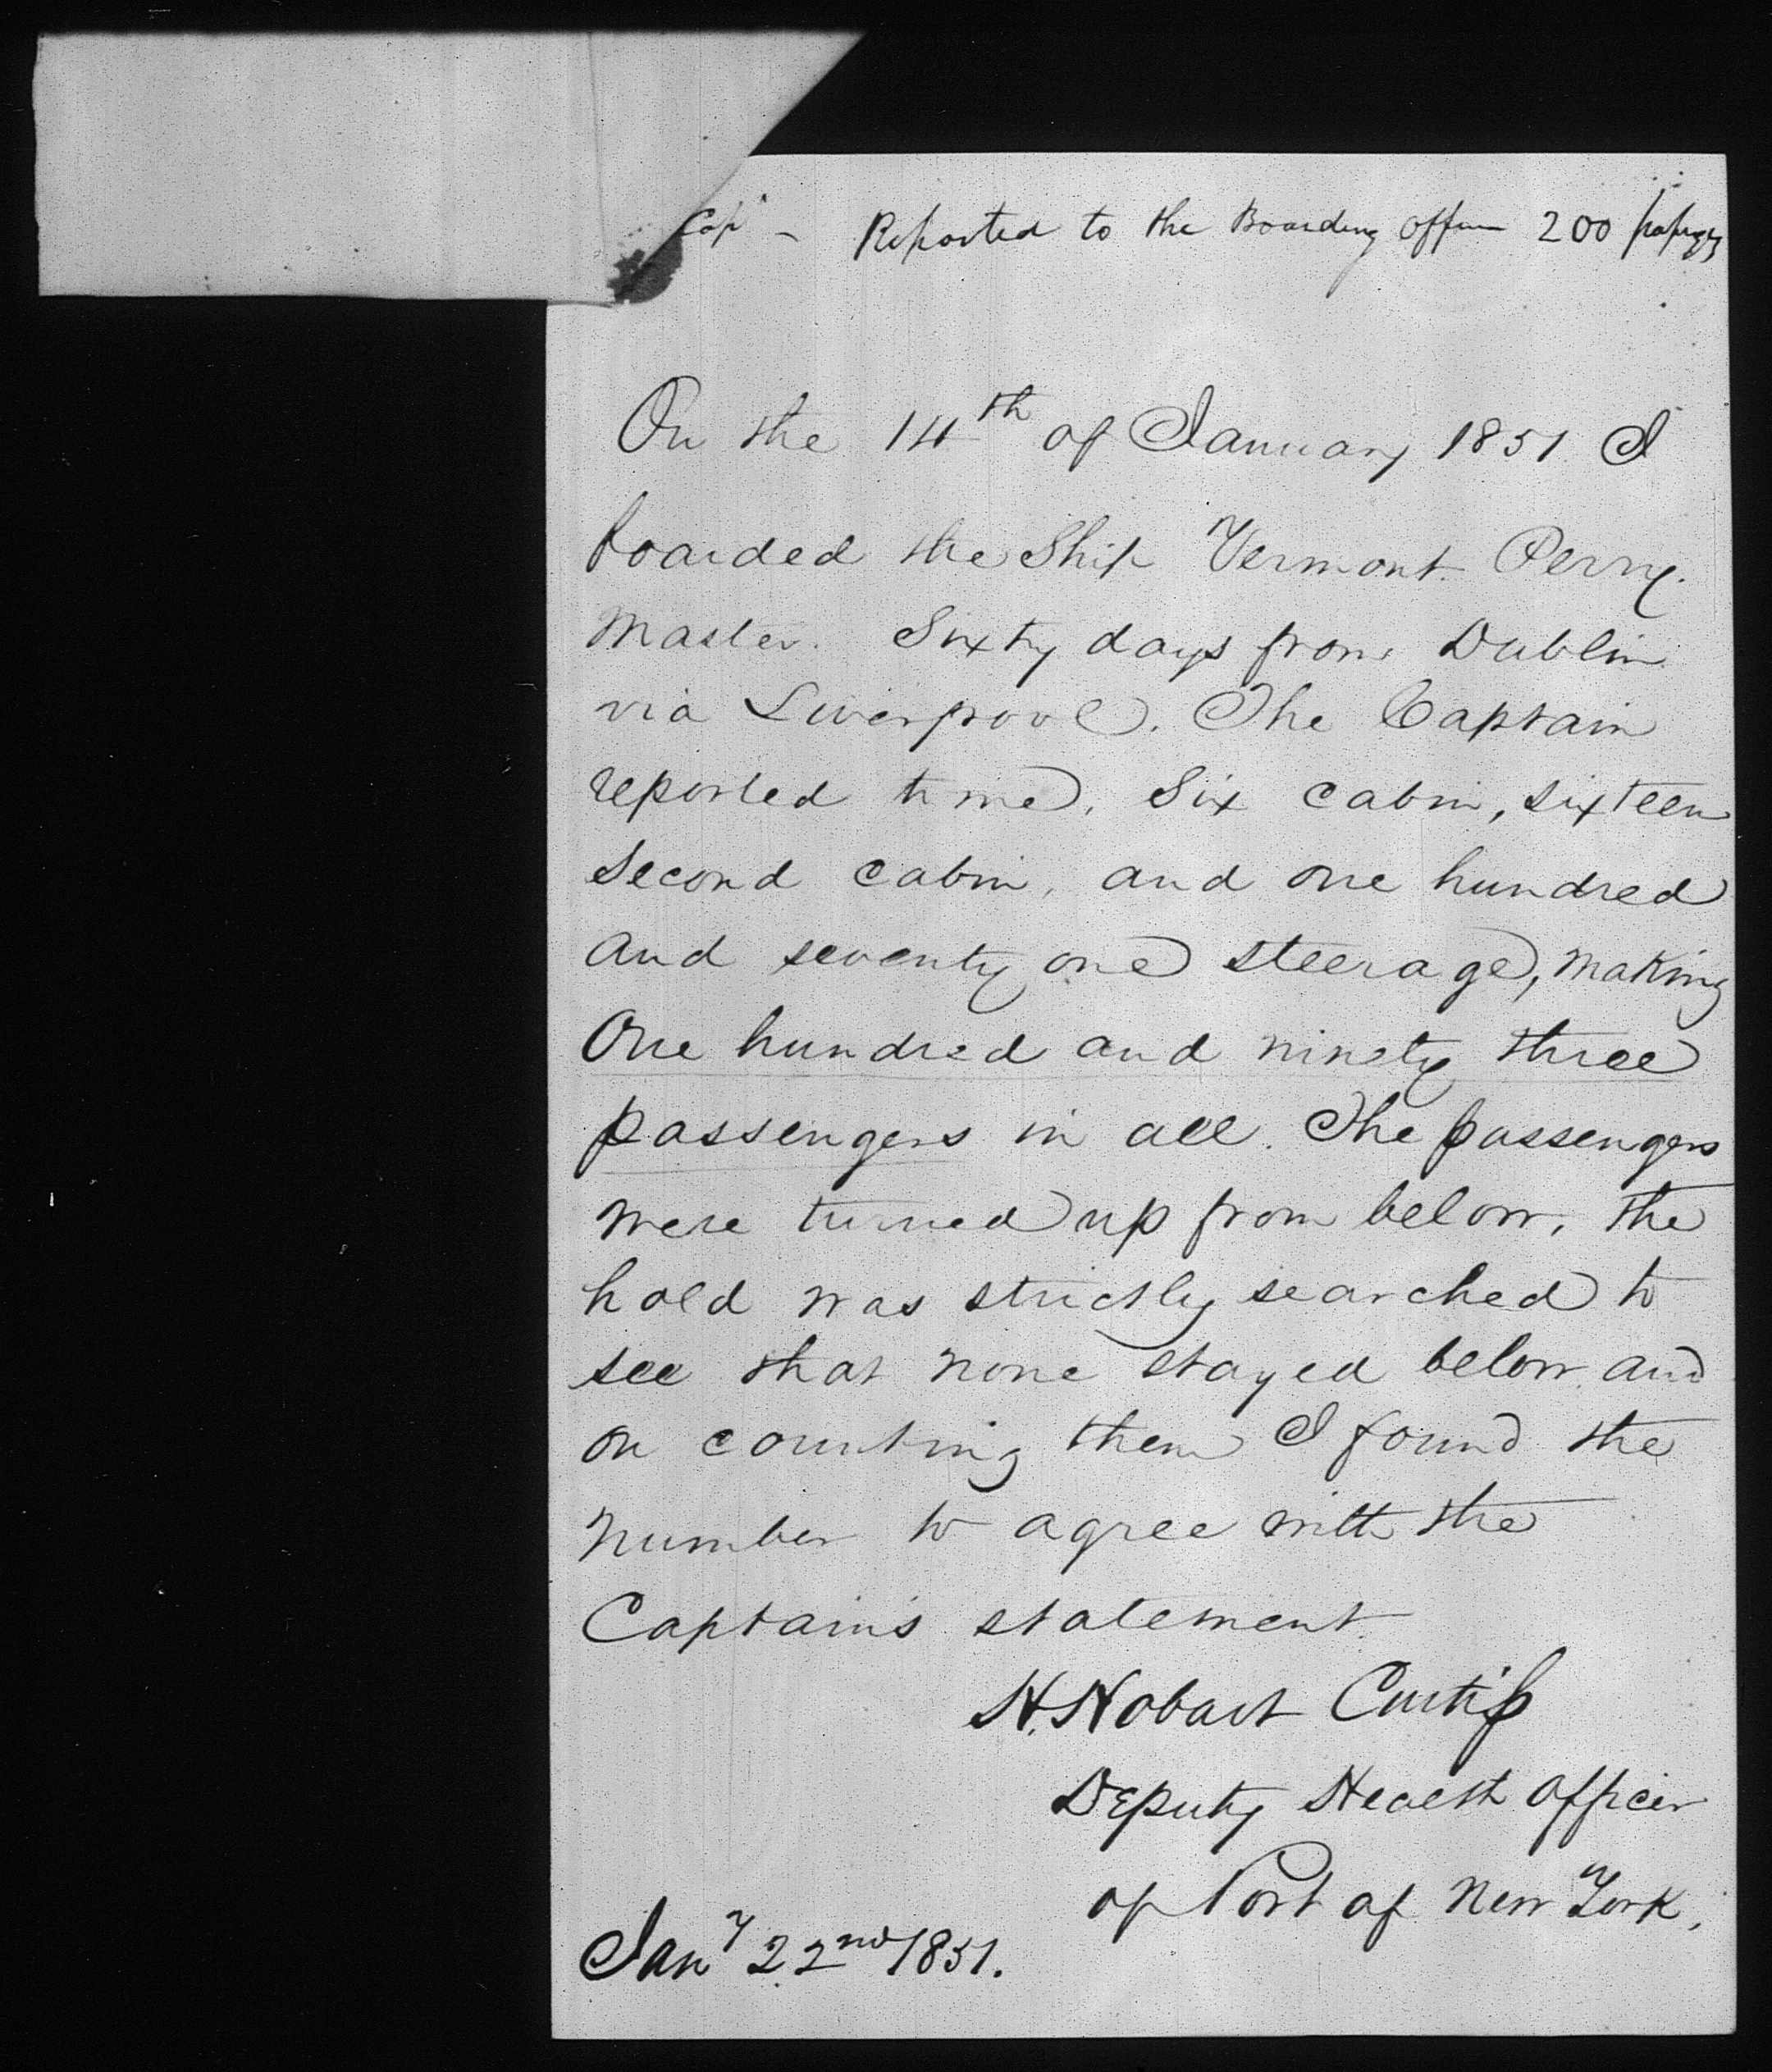 Capt - Reported to the Boarding officer 200 passengrs
On the 14th of January 1851. I
boarded the Ship Vermont. Perry.
Master. Sixty days from Dublin
via Liverpool. The Captain
reported to me, Six cabin, sixteen
second cabin, and one hundred
and seventy one steerage, making
One hundred and ninety three
passengers in all. The passengers
were turned up from below, the
hold was strictly searched to
see that none stayed below and
on counting them I found the
number to agree with the
Captain's statement.
H. Hobart Curtiss
Deputy Health Officer
of Port of New York.
Jany 22nd 1851.